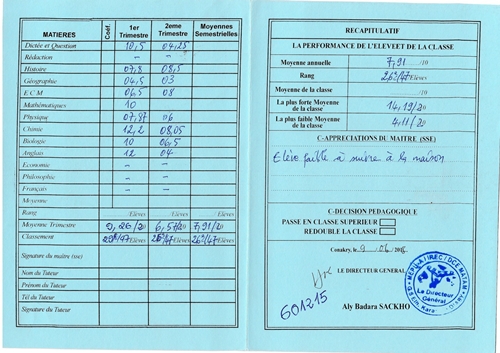 MATIERES Coéf. 1er Trimestre 2eme Trimestre Moyennes Semestrielles
Dictée et Question 10,5 04,25
Rédaction - -
Histoire 07,8 08,5
Géographie 04,5 03
E C M 06,5 08
Mathématiques 10
Physique 07,87 06
Chimie 12,2 08,05
Biologie 10 06,5
Anglais 12 04
Economie - -
Philosophie - -
Français - -
Moyenne
Rang Elèves Elèves Elèves
Moyenne Trimestre 9,26/20 6,57/20 7,91/20
Classement 25e/47 26e/47 26e/47
Signature du maître (sse)
Nom du Tuteur
Prénom du Tuteur
Tél du Tuteur
Signature du Tuteur
RECAPITULATIF
LA PERFORMANCE DE L'ELEVEET DE LA CLASSE
Moyenne annuelle 7,91 /10
Rang 26e/47 Elèves
Moyenne de la classe /10
La plus forte Moyenne de la classe 14,19/20
La plus faible Moyenne de la classe 4,11/20
C-APPRECIATIONS DU MAITRE (SSE)
Elève faible à suivre à la maison
C-DECISION PEDAGOGIQUE
PASSE EN CLASSE SUPERIEUR
REDOUBLE LA CLASSE
Conakry, le 9 06
LE DIRECTEUR GENERAL
Le Directeur
Général
601215
Aly Badara SACKHO